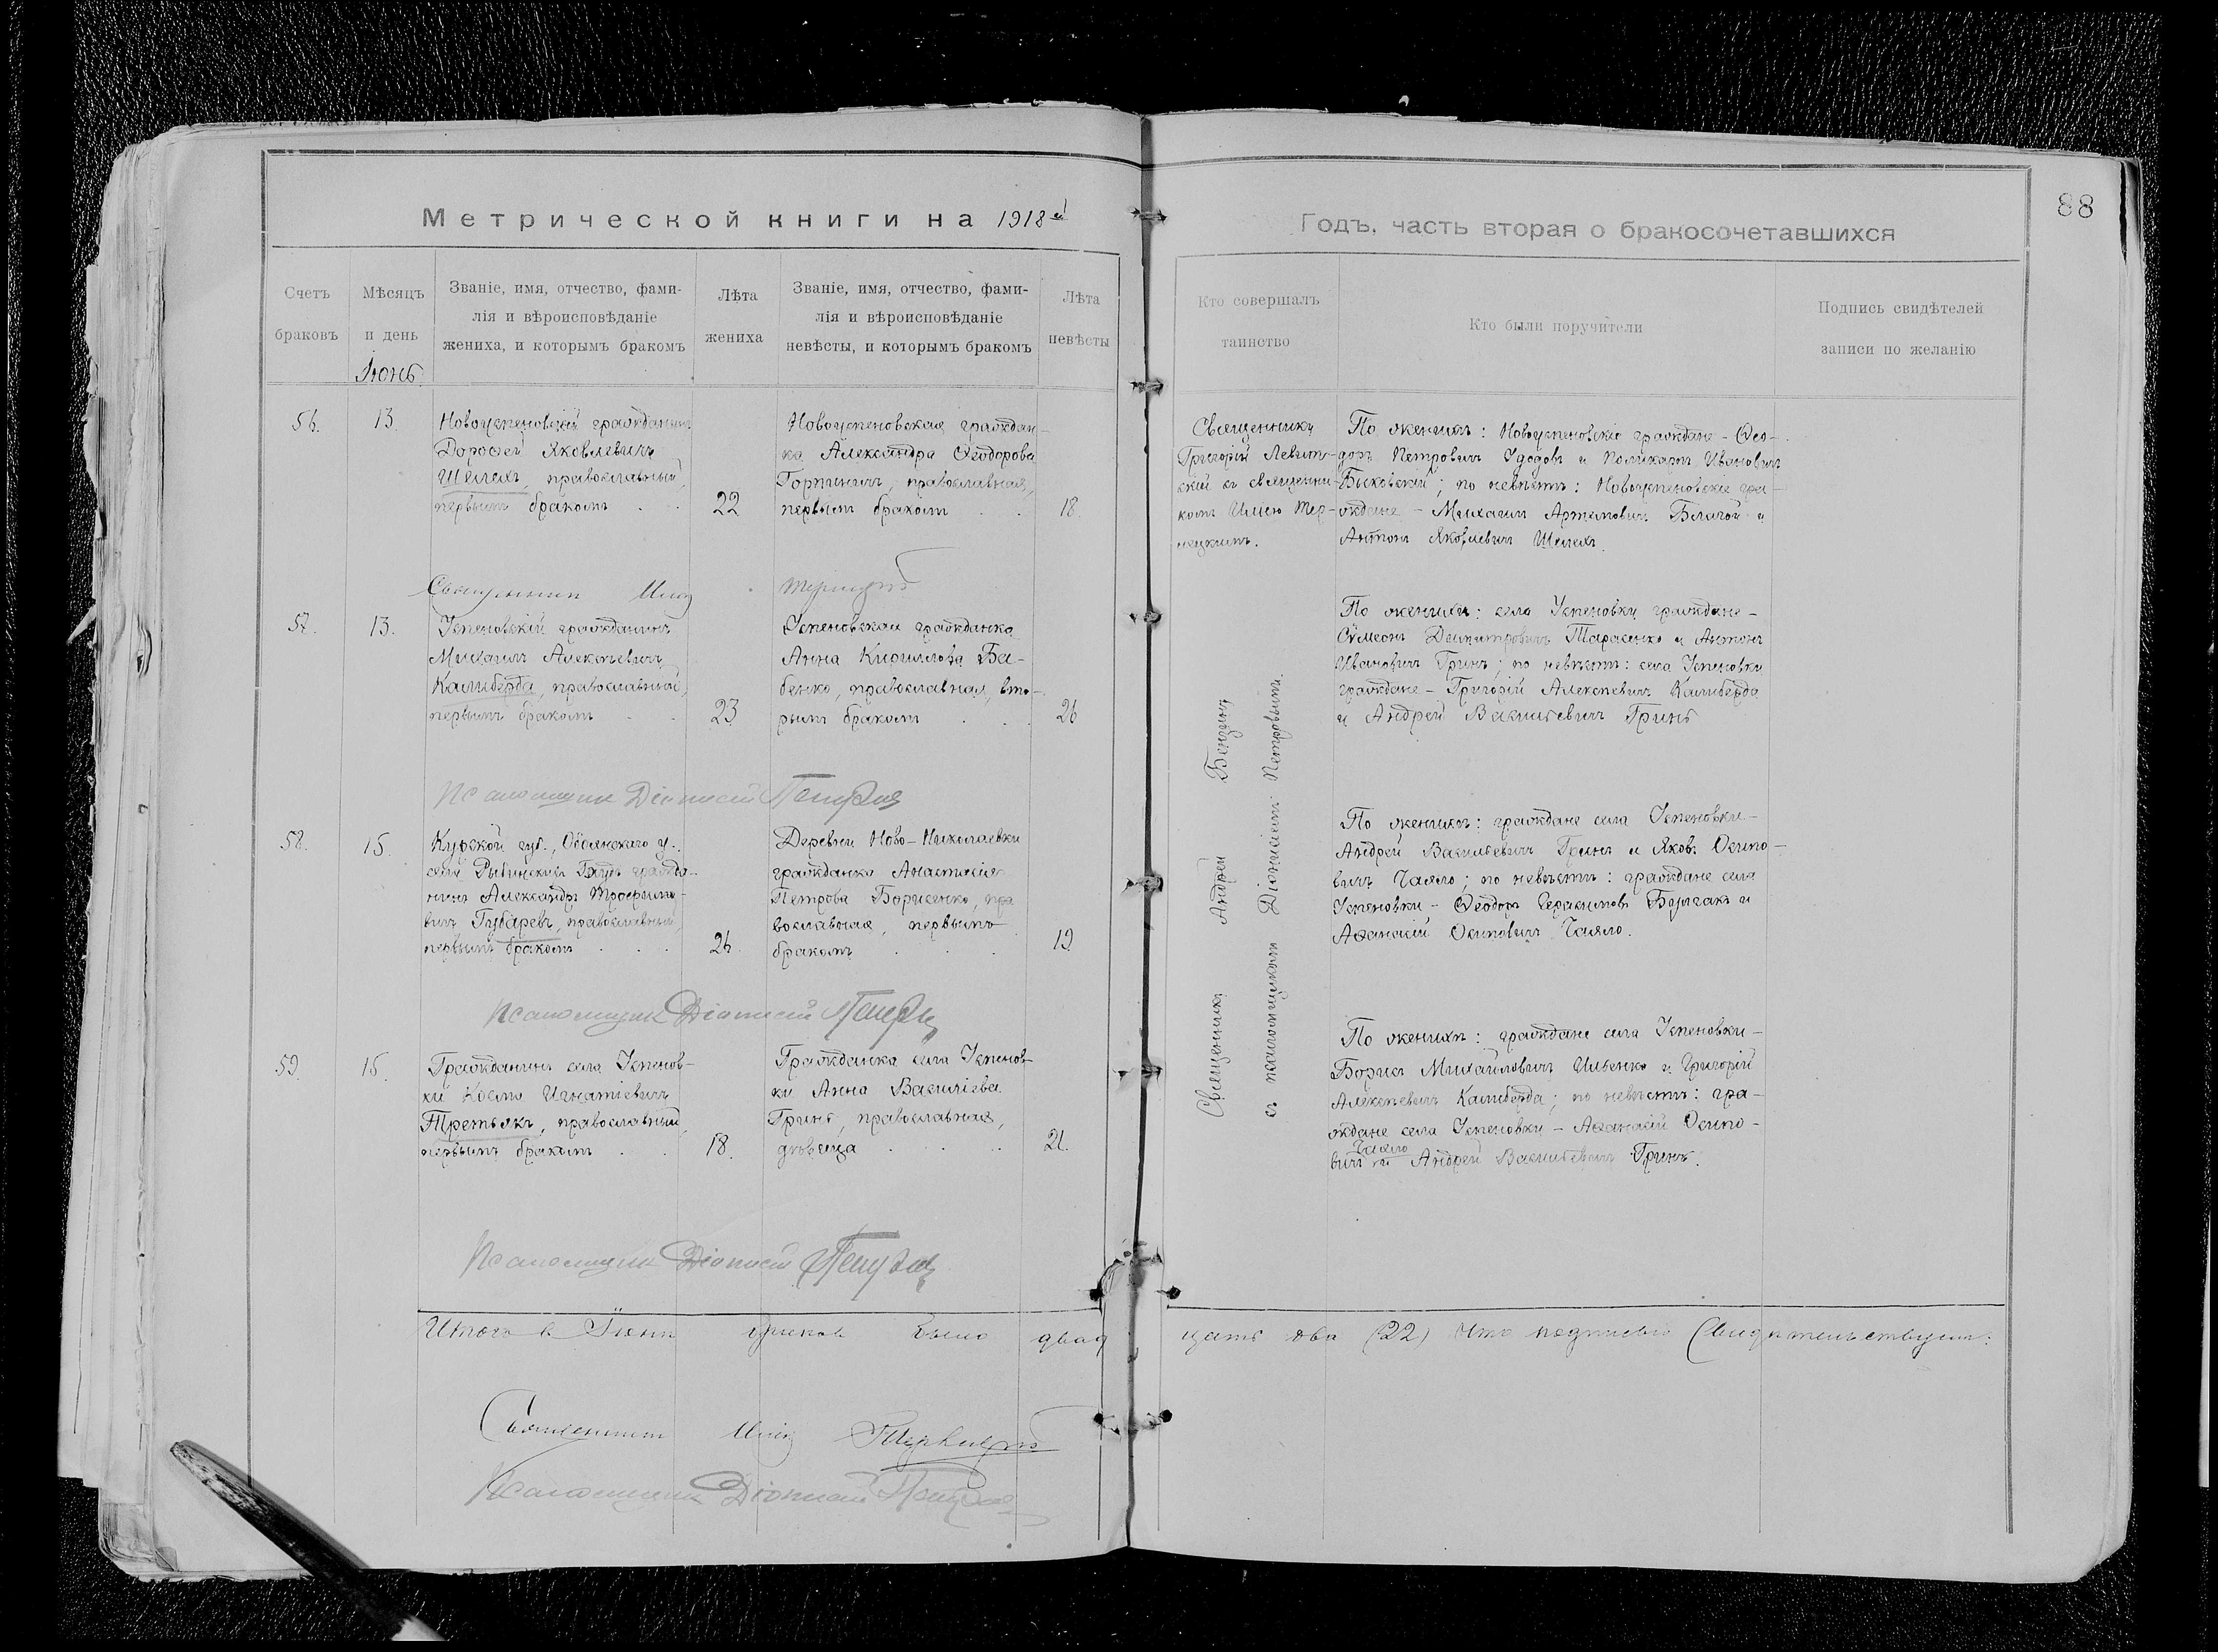 Метрической книги на 1918й
Годъ, часть вторая о бракосочетавшихся
88
Счетъ
браковъ
Мѣсяцъ
и день
Іюнь
Званіе, имя, отчество, фами-
лія и вѣроисповѣданіе
жениха, и которымъ бракомъ
Лѣта
жениха
Званіе, имя, отчество, фами-
лія и вѣроисповѣданіе
невѣсты, и которымъ бракомъ
Лѣта
невѣсты
Кто совершалъ
таинство
Кто были поручители
Подпись свидѣтелей
записи по желанію
56.
13.
Новоуспеновскій гражданинъ
Дорофей Яковлевичъ
Шелехъ, православный,
первымъ бракомъ
22
Новоуспеновская граждан-
ка Александра Ѳеодорова
православная,
первымъ бракомъ
18.
Священникъ
Григорій Левит-
скій съ священни-
комъ Иліею Тер-
нецкимъ.
По женихѣ: Новоуспеновскіе граждане - Ѳео-
доръ Петровичъ Удодовъ и Поликарпъ Ивановичъ
Быковскій; по невѣстѣ: Новоуспеновскіе гра-
ждане - Михаилъ Артемовичъ Благой и
Антонъ Яковлевичъ Шелехъ.
Священникъ Илія
57.
13.
Успеновскій гражданинъ
Михаилъ Алексѣевичъ
Калиберда, православный,
первымъ бракомъ
23
Успеновская гражданка
Анна Кириллова Ба-
бенко, православная, вто-
рымъ бракомъ
26
По женихѣ: села Успеновки граждане -
Сѵмеонъ Димитровичъ Тарасенко и Антонъ
Ивановичъ Гринь; по невѣстѣ: села Успеновки
граждане - Григорій Алексѣевичъ Калиберда
и Андрей Васильевичъ Гринь
Псаломщикъ Діонисій Петровъ
58.
15.
Курской губ., Обоянскаго у.,
села Рыбинскихъ Будъ гражда-
нинъ Александръ Трофимо-
вичъ Губаревъ, православный,
первымъ бракомъ
26.
Деревни Ново-Николаевки
гражданка Анастасія
Петрова Борисенко, пра
вославная, первымъ
бракомъ
19.
Священникъ Андрей
съ псаломщикомъ Діонисіемъ Петровымъ.
По женихѣ: граждане села Успеновки -
Андрей Васильевичъ Гринь и Яковъ Осипо-
вичъ Чаяло; по невѣстѣ: граждане села
Успеновки - Ѳеодоръ Герасимовъ Бурлакъ и
Аѳанасій Осиповичъ Чаяло.
Псаломщикъ Діонисій Петровъ
59.
15.
Гражданинъ села Успенов-
ки Косма Игнатіевичъ
Третьякъ, православный,
первымъ бракомъ
18.
Гражданка села Успенов-
ки Анна Васильева
Гринь, православная,
дѣвица
21.
По женихѣ: граждане села Успеновки -
Борисъ Михайловичъ Ильенко и Григорій
Алексѣевичъ Калиберда; по невѣстѣ: гра-
ждане села Успеновки - Аѳанасій Осипо-
вичъ Чаяло и Андрей Васильевичъ Гринь.
Псаломщикъ Діонисій Петровъ
Итого въ Іюнѣ браковъ было двад цать два (22) Что подписью Свидѣтельствуемъ:
Священникъ Илія
Псаломщикъ Діонисій Петровъ